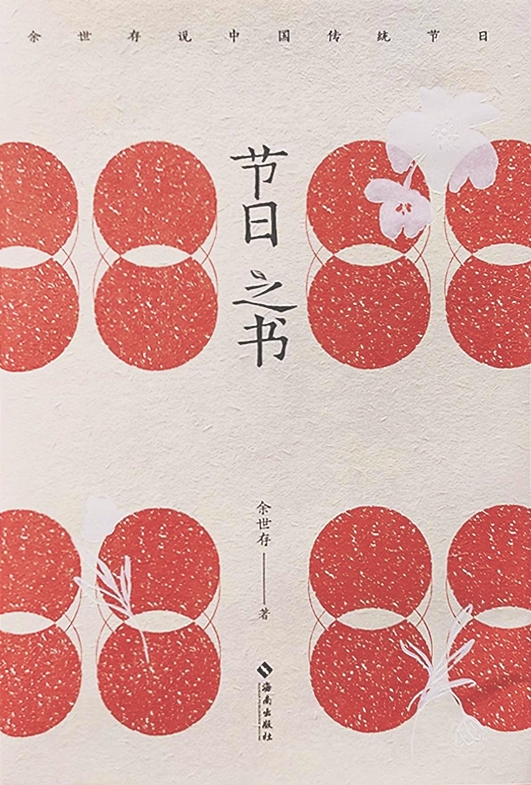 余世存说中国传统节日
节日之书
余世存 著
海南出版社